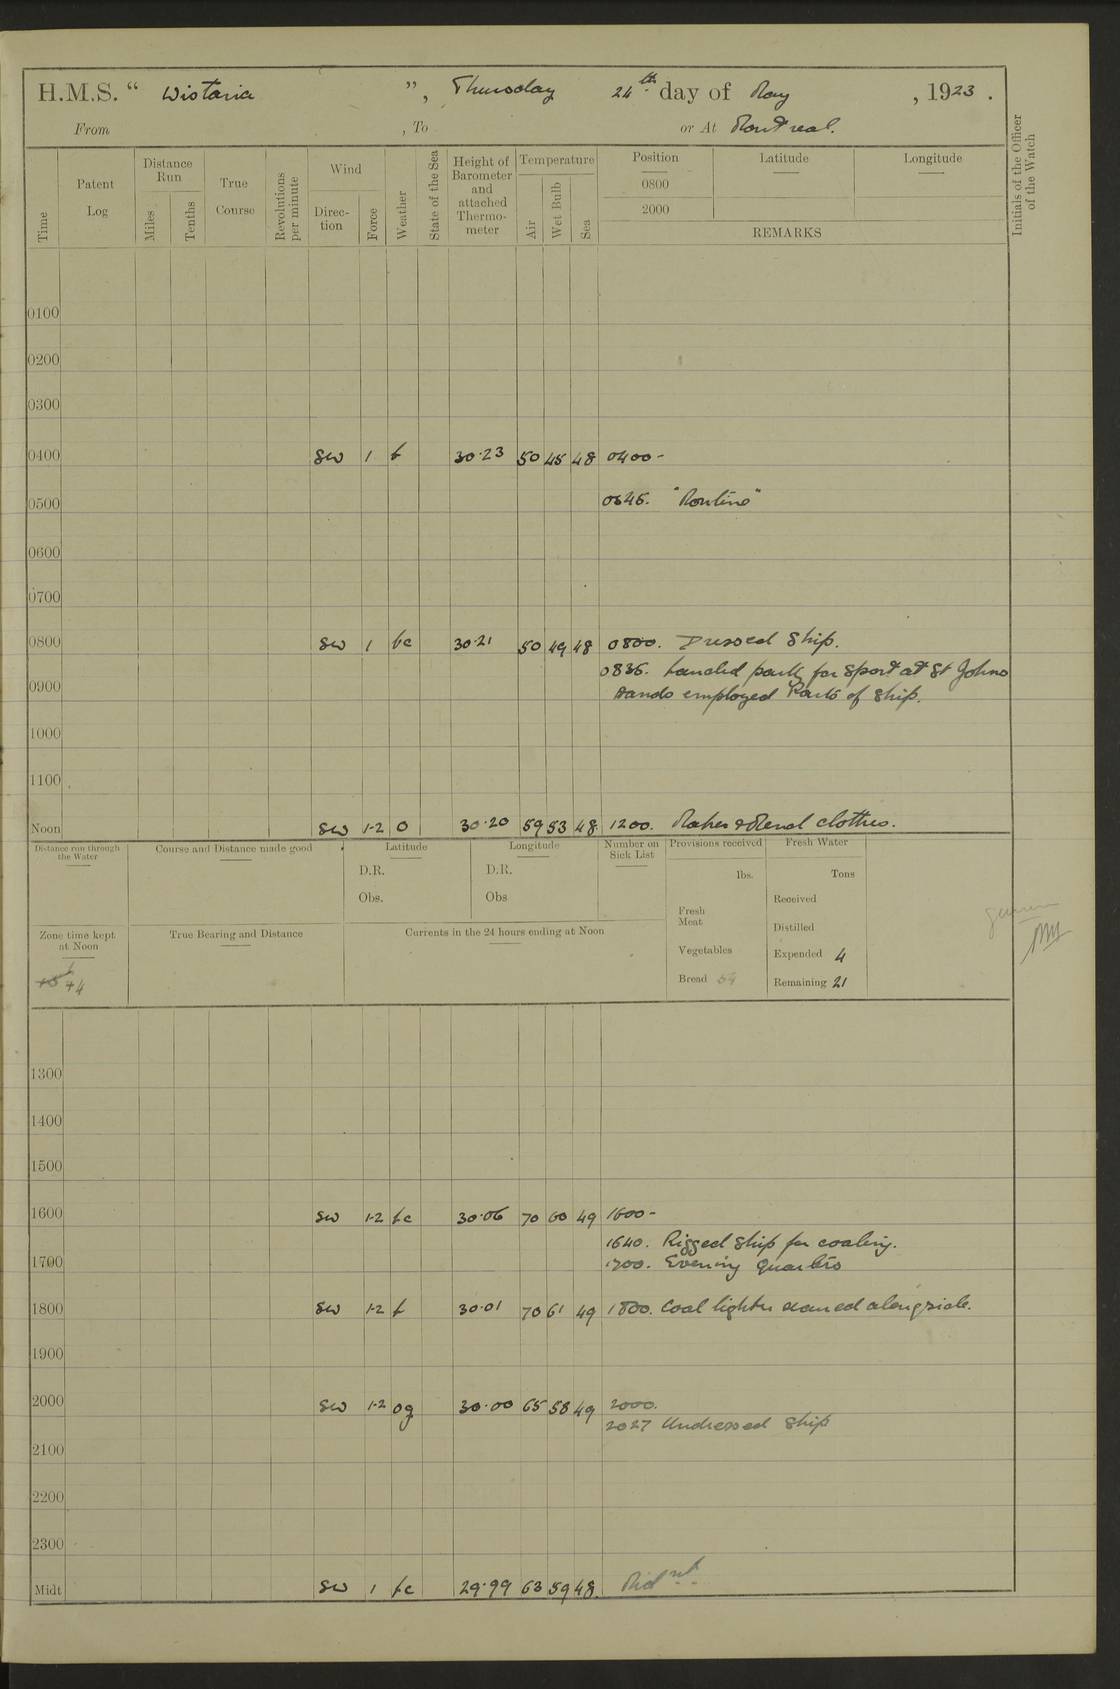 H.M.S. “ Wistaria ”, Thursday 24th day of May , 1923 .
From , To or At Montreal.
Time
Patent Log
Distance Run
Miles
Tenths
True Course
Revolutions per minute
Wind
Direction
Force
Weather
State of the Sea
Height of Barometer and attached Thermometer
Temperature
Air
Wet Bulb
Sea
Position
0800
2000
Latitude
Longitude
REMARKS
Initials of the Officer of the Watch
0100
0200
0300
0400 SW 1 b 30·23 50 45 48 0400-
0500 0645. "Routine"
0600
0700
0800 SW 1 bc 30·21 50 49 48 0800. Dressed Ship.
0835. Landed party for Sport at St Johns
0900 Hands employed Parts of Ship.
1000
1100
Noon SW 1-2 O 30·20 59 53 48 1200. Make & Mend clothes.
Distance run through the Water
Course and Distance made good
Latitude
D.R.
Obs.
Longitude
D.R.
Obs
Number on Sick List
Provisions received
lbs.
Fresh Meat
Vegetables
Bread 54
Fresh Water
Tons
Received
Distilled
Expended 4
Remaining 21
Zone time kept at Noon
+5 +4
True Bearing and Distance
Currents in the 24 hours ending at Noon
1300
1400
1500
1600 SW 1-2 bc 30·06 70 60 49 1600-
1640. Rigged Ship for coaling.
1700 1700. Evening Quarters
1800 SW 1-2 b 30·01 70 61 49 1800. Coal lighter secured alongside.
1900
2000 SW 1-2 og 30·00 65 58 49 2000.
2027 Undressed Ship
2100
2200
2300
Midt SW 1 bc 29·99 63 59 48. Midnt